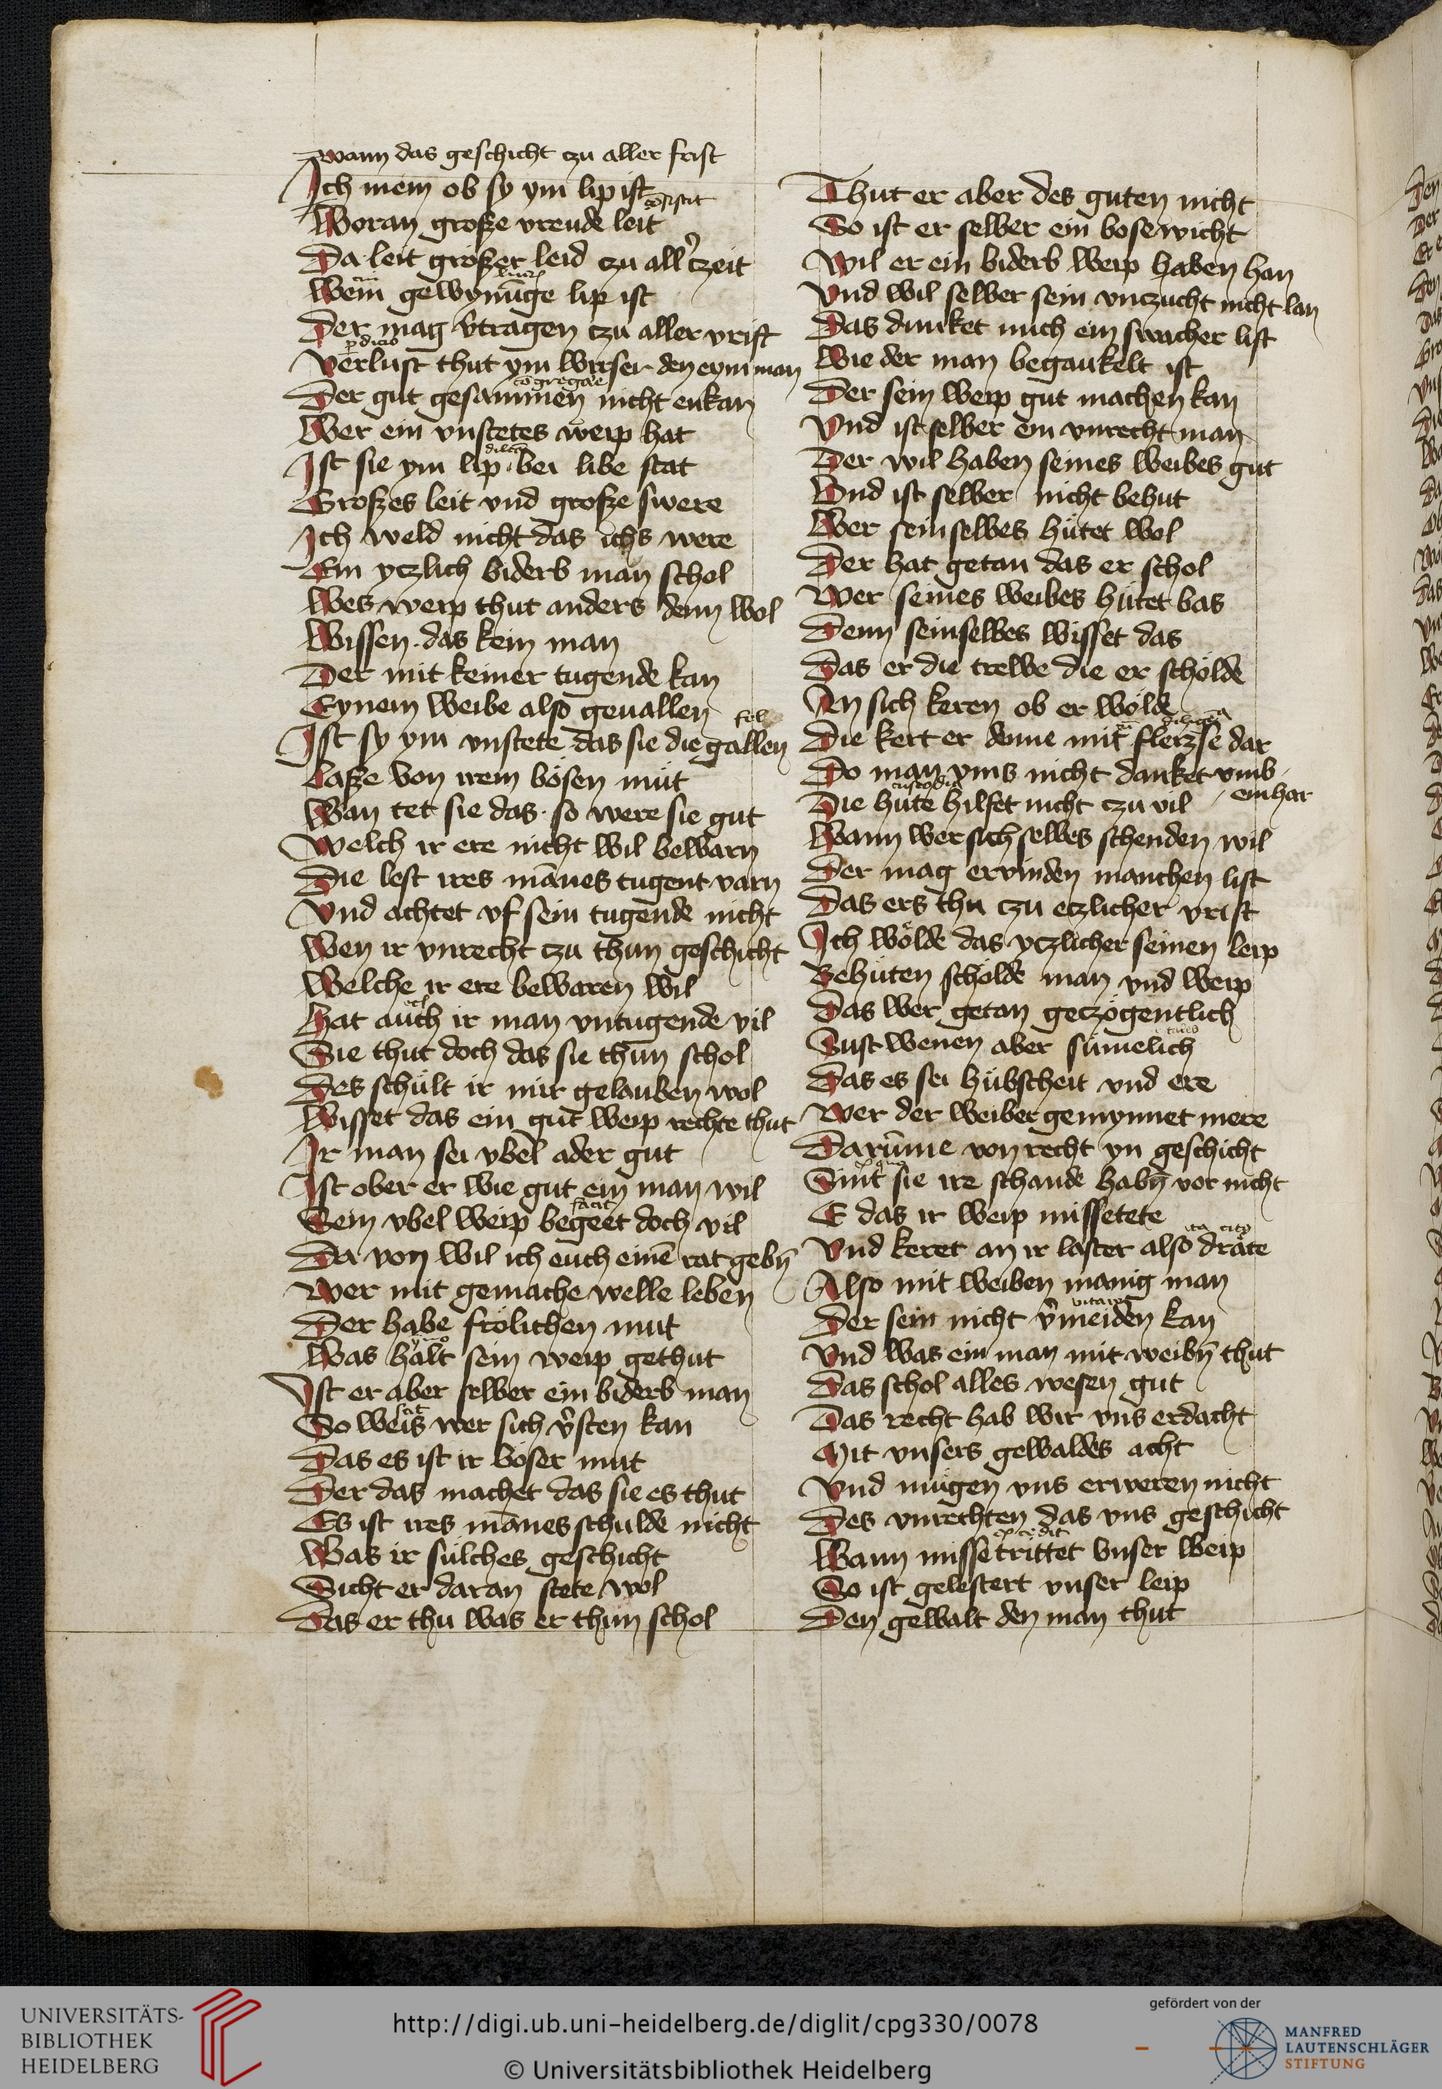 wann das geschicht czu aller frist
Ich mein ob sy ym lip ist
Woran große vreude leit
Da leit großer leid czu all czeit
Wem gewynnige lip ist
Der mag vtragen czu aller vrist
Verlust thut ym wirser den eym man
Der gut gesammen nicht enkan
Wer ein vnstetes weip hat
Ist sie ym lip bei libe stat
Großes leit vnd große swere
Ich weld nicht das ichs were
Ein yczlich biderb man schol
Wes weip thut anders denn wol
Wissen das kein man
Der mit keiner tugende kan
Eynem weibe also geuallen
Ist sy ym vnstete das sie die gallen
Laße von irem bösen mut
Wan tet sie das so were sie gut
Welch ir ere nicht wil bewarn
Die lest ires mānes tugent varn
Vnd achtet vf sein tugende nicht
Wen ir vnrecht czu thun geschicht
Welche ir ere bewaren wil
Hat auch ir man vntugende vil
Sie thut doch das sie thun schol
Des schult ir mir gelauben wol
Wisset das ein gut weip rechte thut
Ir man sei vbel ader gut
Ist ober er wie gut ein man wil
Sein vbel weip begeet doch vil
Da von wil ich euch einē rat gebn̄
Wer mit gemache welle leben
Der habe frölichen mut
Was halt sein weip gethut
Ist er aber selber ein biderb man
So weis wer sich vsten kan
Das es ist ir böser mut
Der das machet das sie es thut
Es ist ires mānes schulde nicht
Was ir sulches geschicht
Sicht er daran stete wol
Das er thu was er thun schol
Thut er aber des guten nicht
So ist er selber ein bosewicht
Wil er ein biderb weip haben han
Vnd wil selber sein vnczucht nicht lan
Das dunket mich ein swacher list
Wie der man begaukelt ist
Der sein weip gut machen kan
Vnd ist selber ein vnrecht man
Der wil haben seines weibes gut
Vnd ist selber nicht behut
Wer seinselbes hütet wol
Der hat getan das er schol
Wer seines weibes hütet bas
Denn seinselbes wisset das
Das er die trewe die er schölde
An sich keren ob er wölde
Die kert er denne mit fleizse dar
Do man yms nicht danket vmb
ein har
Die hute hilfet nicht czu vil
Wann wer sich selbes schenden wil
Der mag ervinden manchen list
Das ers thu czu eczlicher vrist
Ich wölde das yczlicher seinen leip
Behüten schölde man vnd weip
Das wer getan geczögentlich
Sust wenen aber sümelich
Das es sei hübscheit vnd ere
Wer der weiber gemynnet mere
Darūme von recht yn geschicht
Sint sie ire schande habn̄ vor nicht
E das ir weip missetete
Vnd keret an ir laster also drate
Also mit weiben manig man
Der sein nicht vmeiden kan
Vnd was ein man mit weibn̄ thut
Das schol alles wesen gut
Das recht hab wir vns erdacht
Mit vnsers gewaldes acht
Vnd mugen vns erweren nicht
Des vnrechten das vns geschicht
Wann missetrittet vnser weip
So ist gelestert vnser leip
Den gewalt den man thut
UNIVERSITÄTS-
BIBLIOTHEK
HEIDELBERG
http://digi.ub.uni-heidelberg.de/diglit/cpg330/0078
© Universitätsbibliothek Heidelberg
gefördert von der
MANFRED
LAUTENSCHLÄGER
STIFTUNG